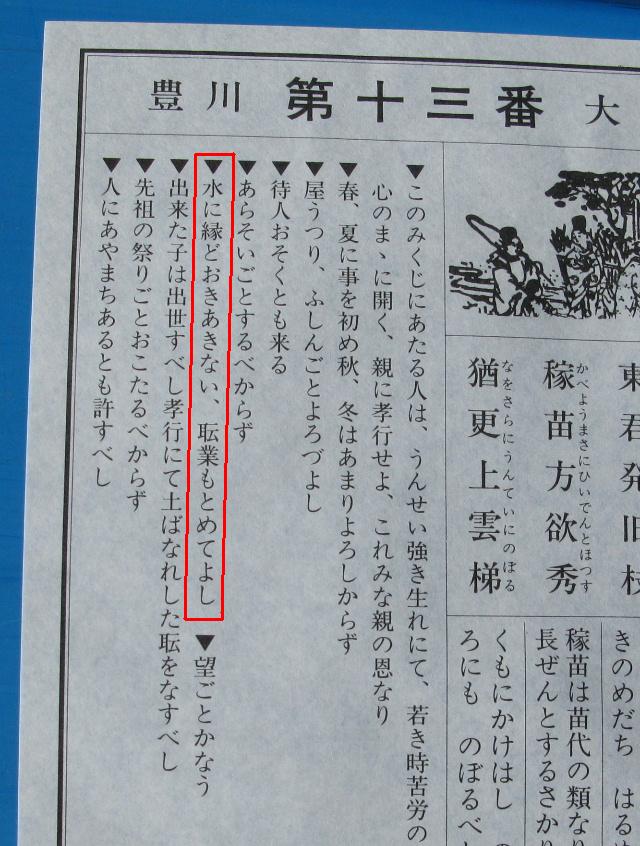 豊川 第十三番 大
東君発旧枝
稼苗方欲秀
かべようまさにひいでんとほつす
猶更上雲梯
なをさらにうんていにのぼる
きのめだち はるめ
稼苗は苗代の類なり
長ぜんとするさかり
くもにかけはし の
ろにも のぼるべし
▼このみくじにあたる人は、うんせい強き生れにて、若き時苦労の
心のまゝに開く、親に孝行せよ、これみな親の恩なり
▼春、夏に事を初め秋、冬はあまりよろしからず
▼屋うつり、ふしんごとよろづよし
▼待人おそくとも来る
▼あらそいごとするべからず
▼水に縁どおきあきない、転業もとめてよし ▼望ごとかなう
▼出来た子は出世すべし孝行にて土ばなれした転をなすべし
▼先祖の祭りごとおこたるべからず
▼人にあやまちあるとも許すべし